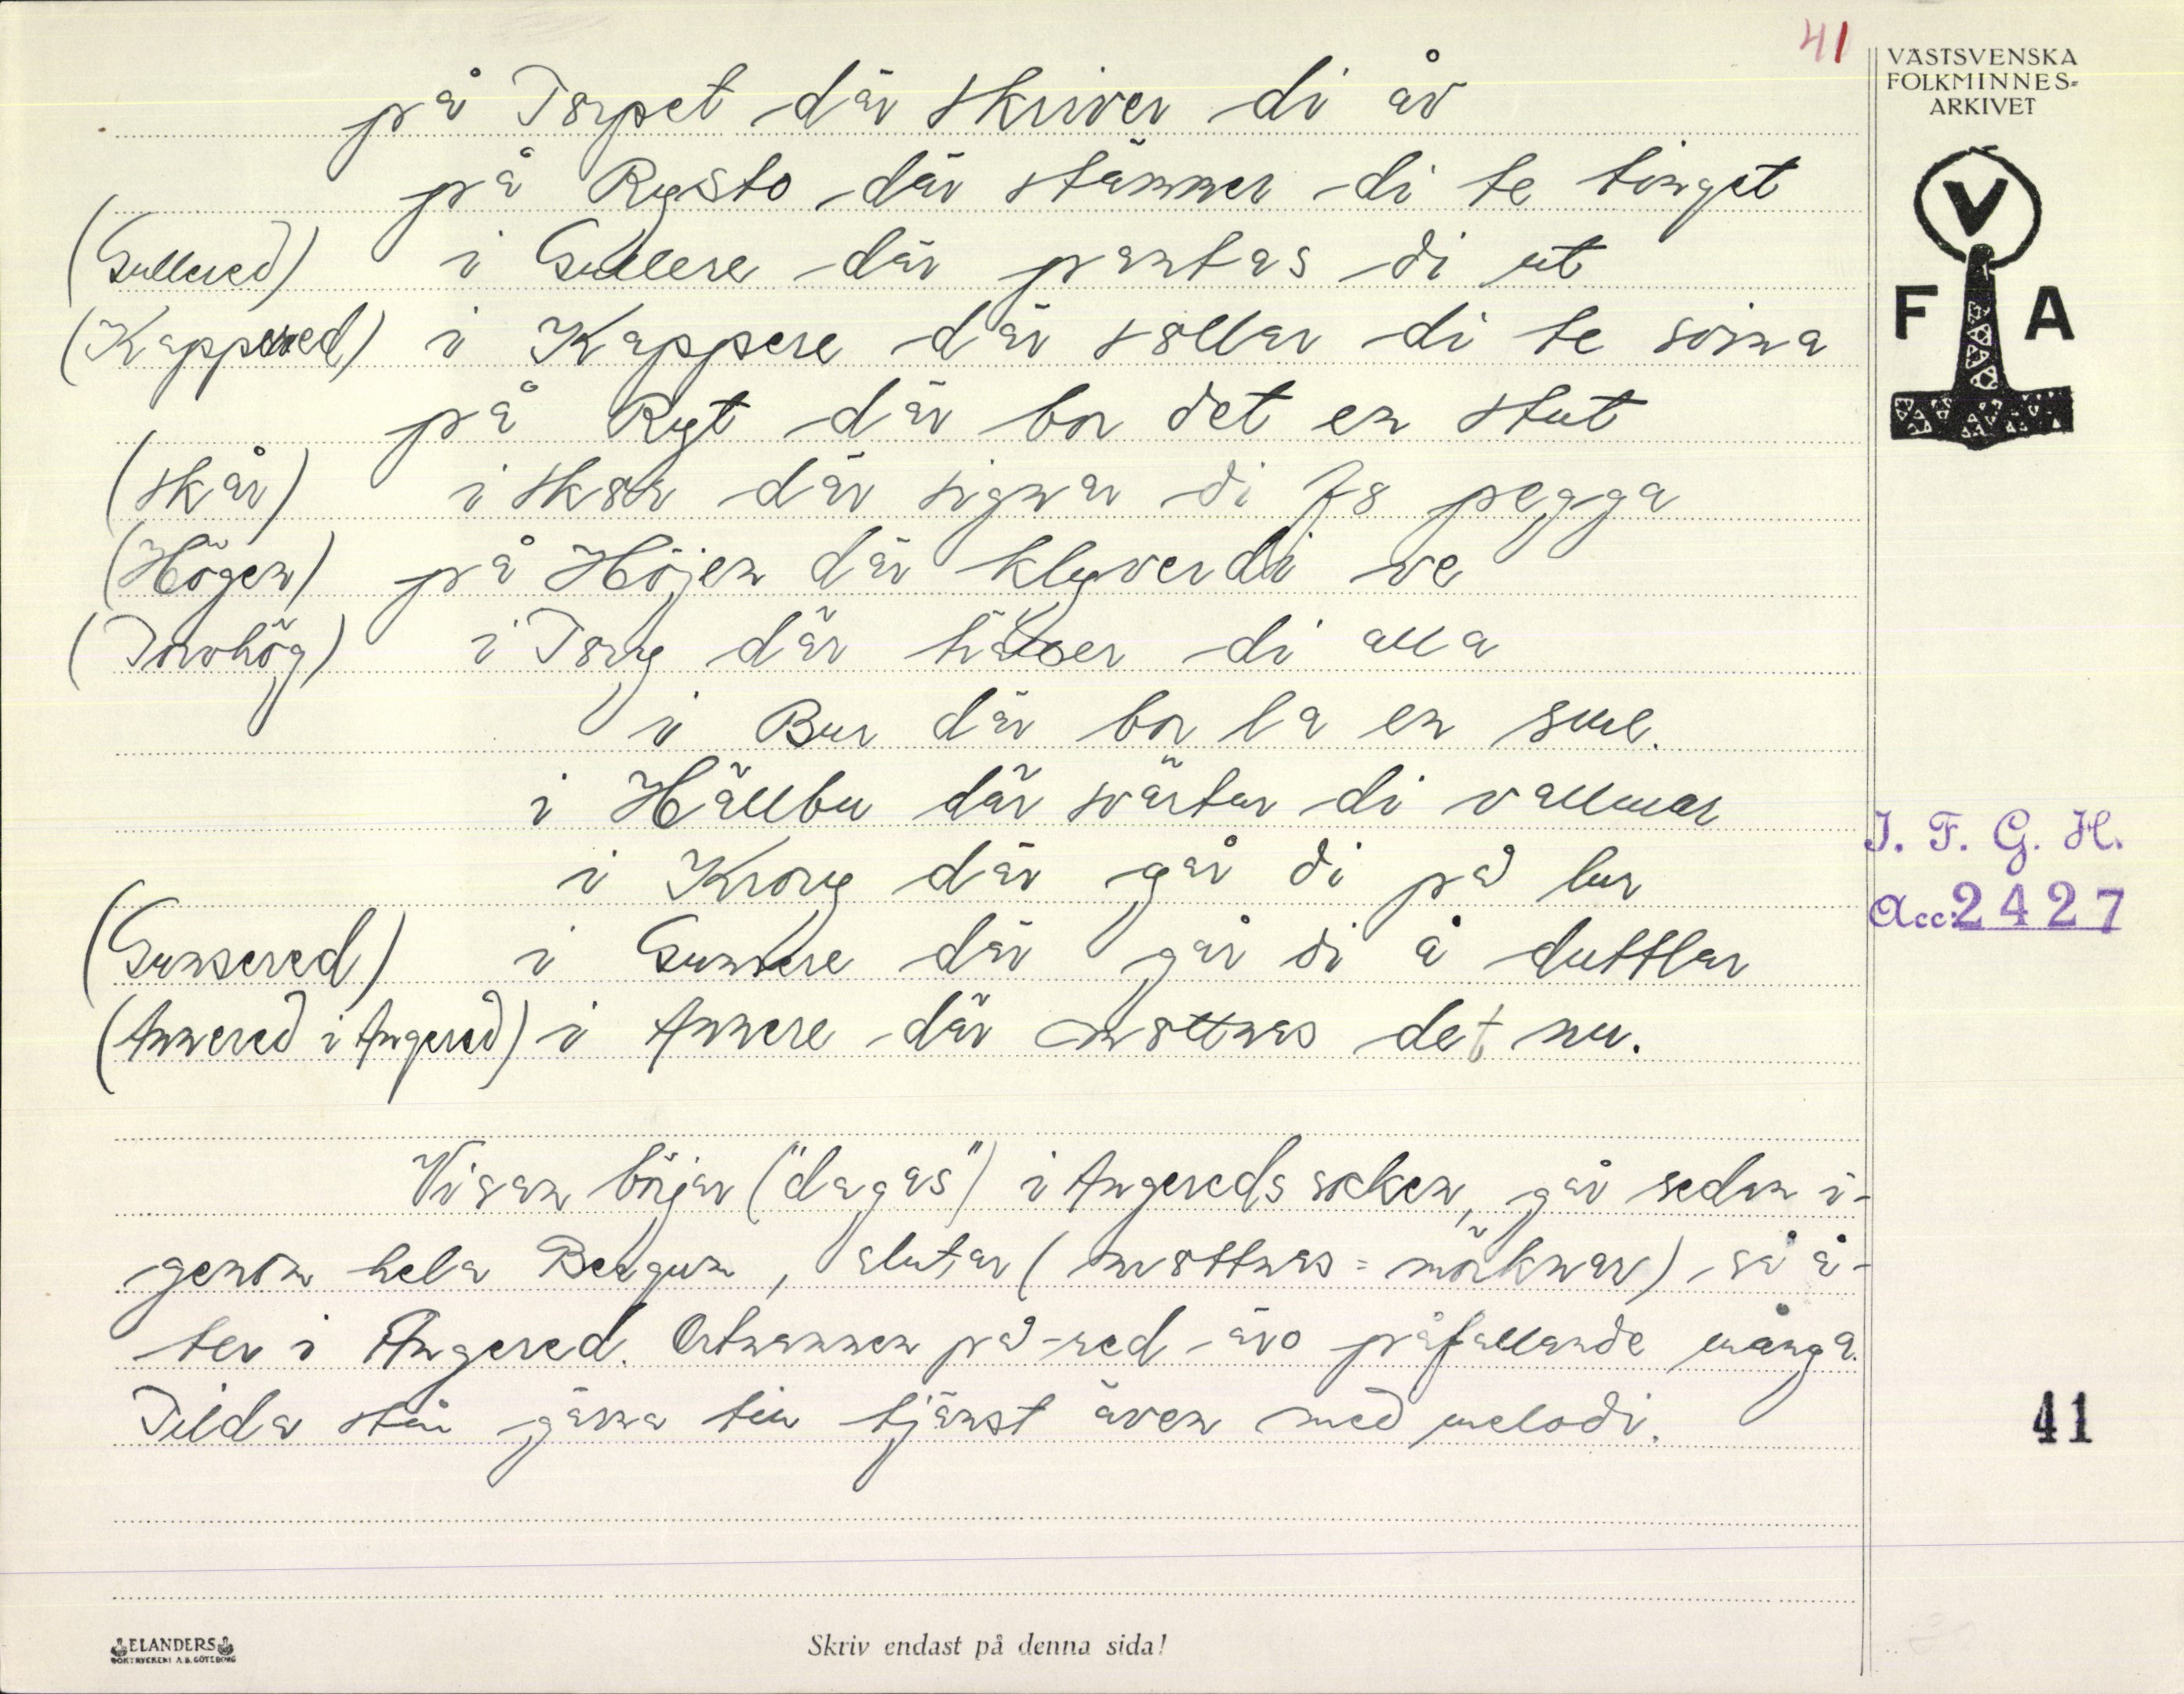 41
VÄSTSVENSKA
FOLKMINNES-
ARKIVET
V
F A
på Torpet där skriver di åv
på Rysto där stämmer di te tinget
(Gullered) i Gullere där pantas di ut
(Kappered) i Kappere där sollar di te svina
på Ryt där bor det en stut
(Skår) i Skor där signar di fo pegga
(Högen) på Höjen där klyver di ve
(Torvhög) i Torvy där di alla
i Bur där bor la en sme.
i Hällbu där svärtar di vallmar
i Krovy där går di på lur
(Gunsered) i Gunsere där går di å luttlar
(Annered i Angered) i Annere där mottnas det nu.
I. F. G. H.
Acc: 2427
Visan börjar ("dagas") i Angereds socken, går sedan i-
genom hela Bergum, slutar (mottnas = mörknar) så å-
ter i Angered. Ortnamnen på -red äro påfallande många.
Tilda står gärna till tjänst även med melodi.
41
ELANDERS
BOKTRYCKERI A.B. GÖTEBORG
Skriv endast på denna sida!